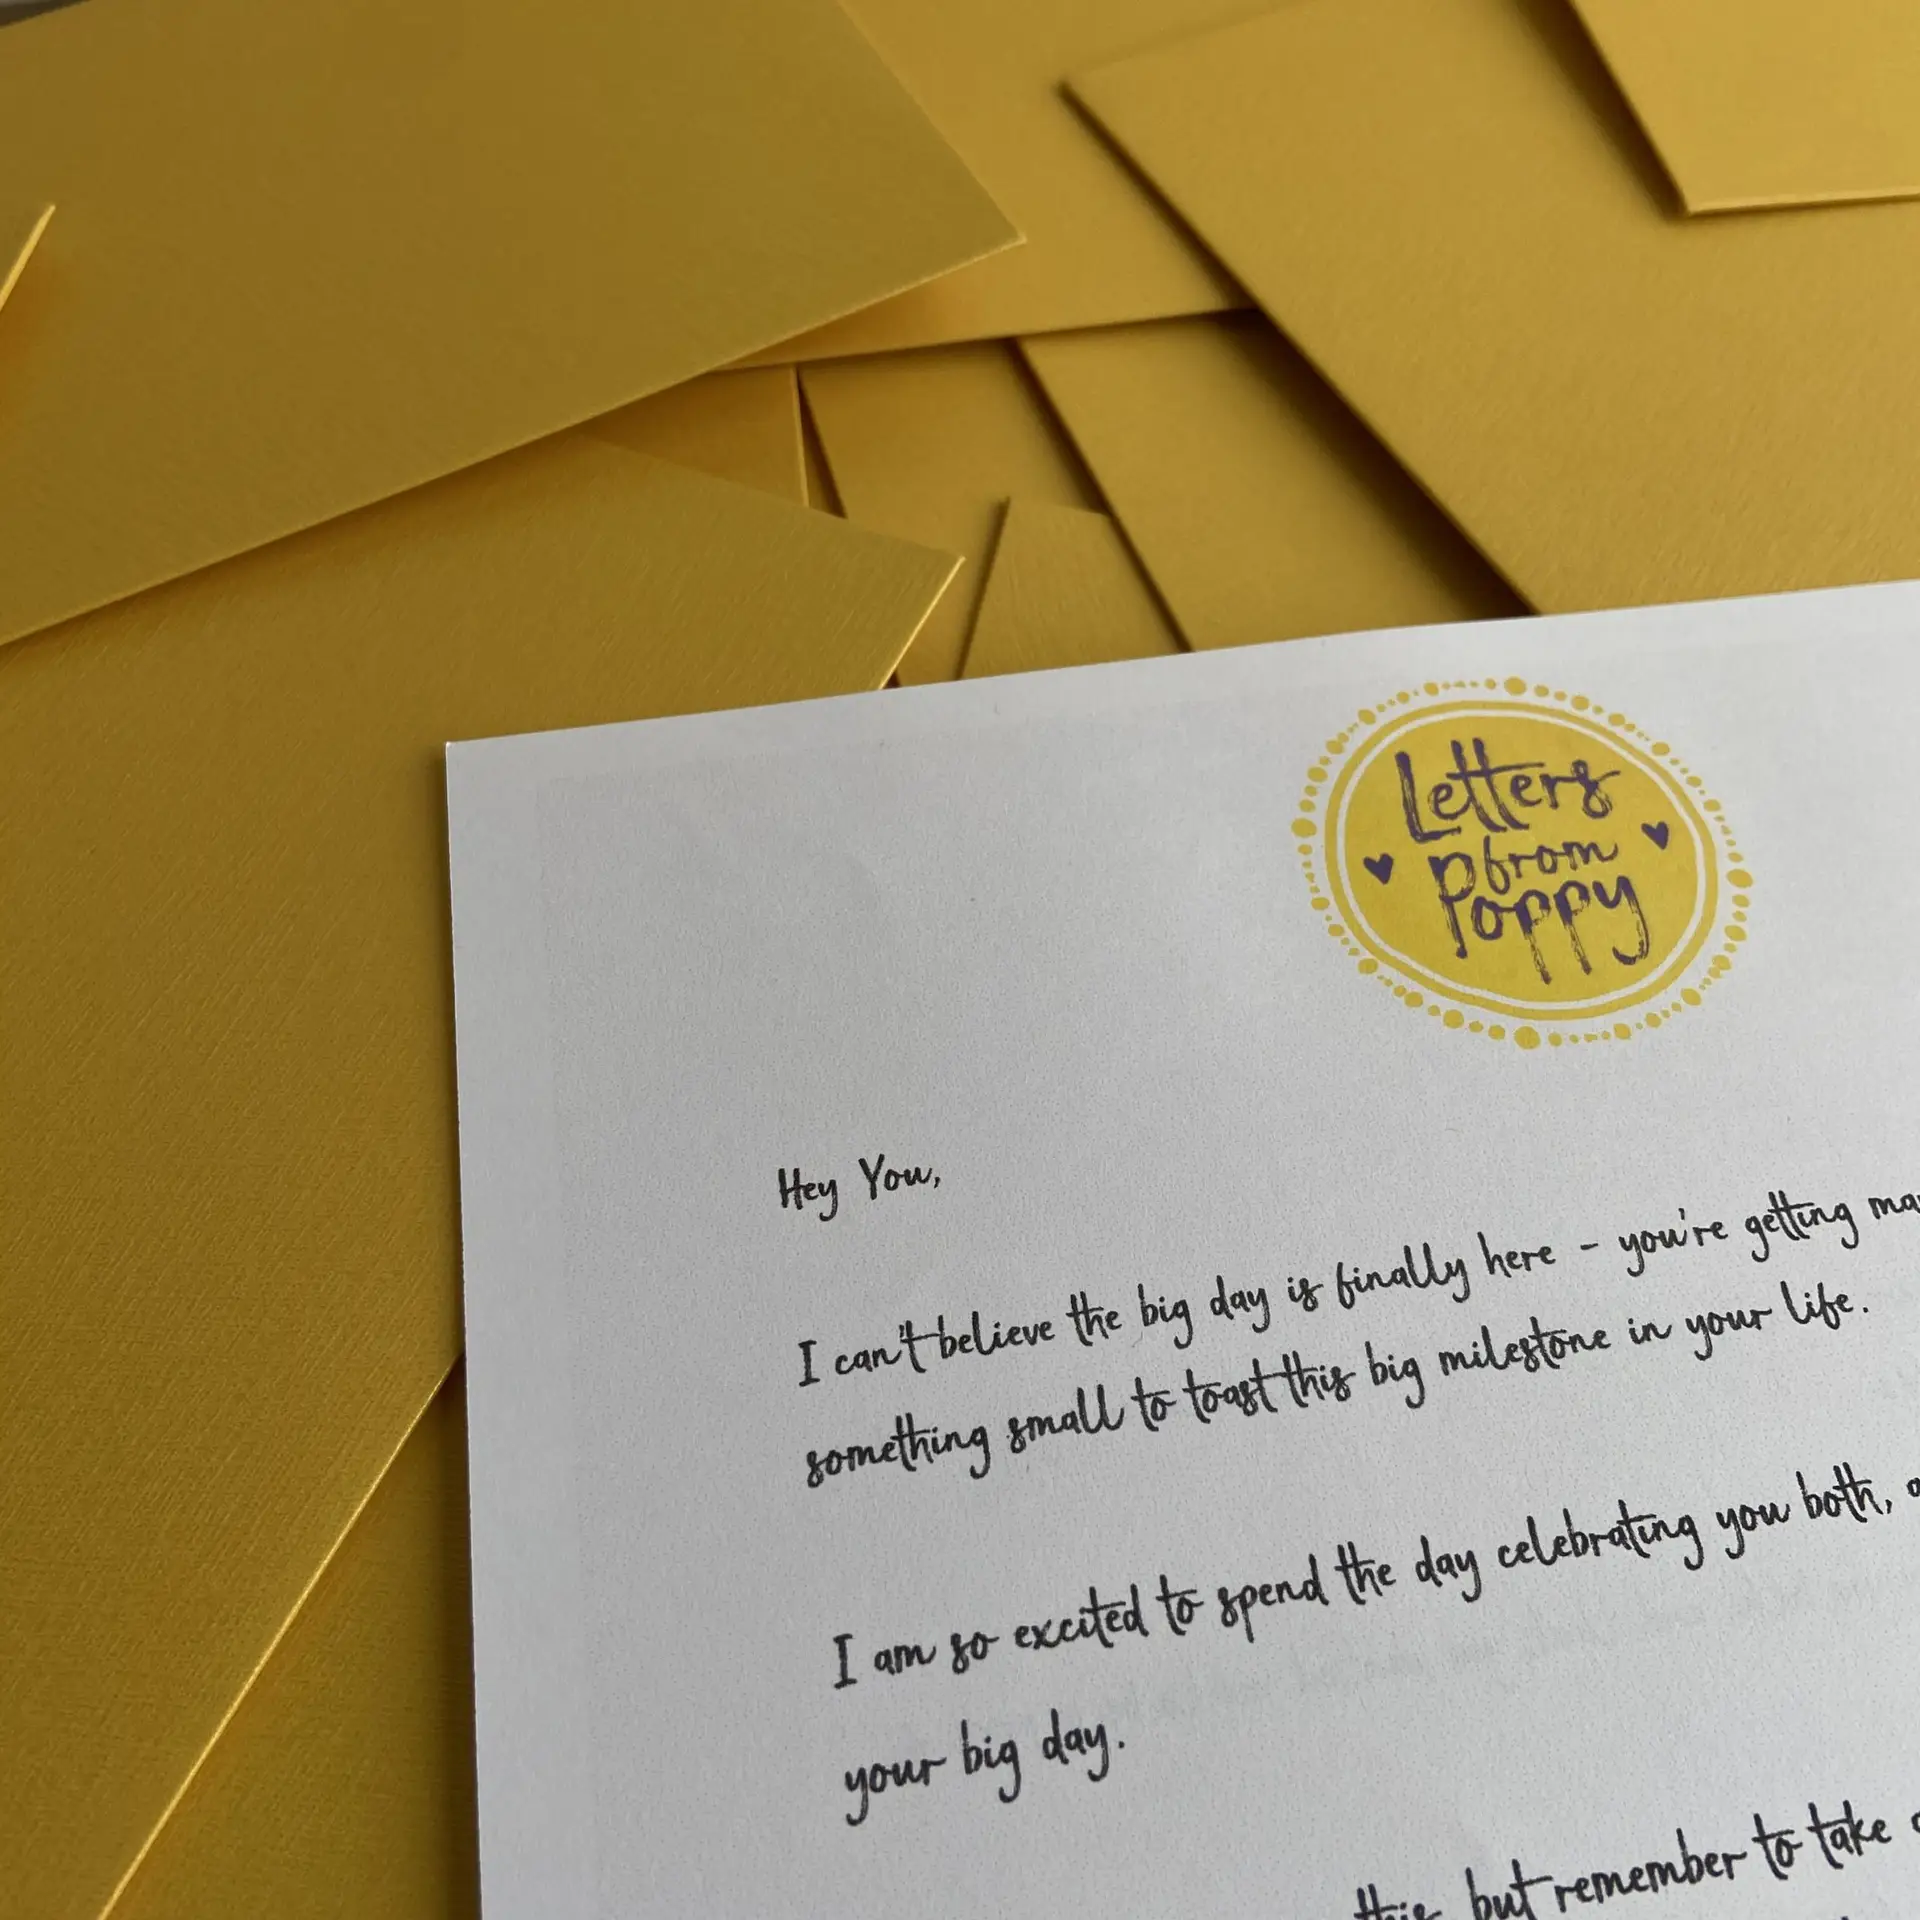 Letters
from
Poppy
Hey You,
I can't believe the big day is finally here - you're getting
something small to toast this big milestone in your life.
I am so excited to spend the day celebrating you both,
your big day.
this, but remember to take